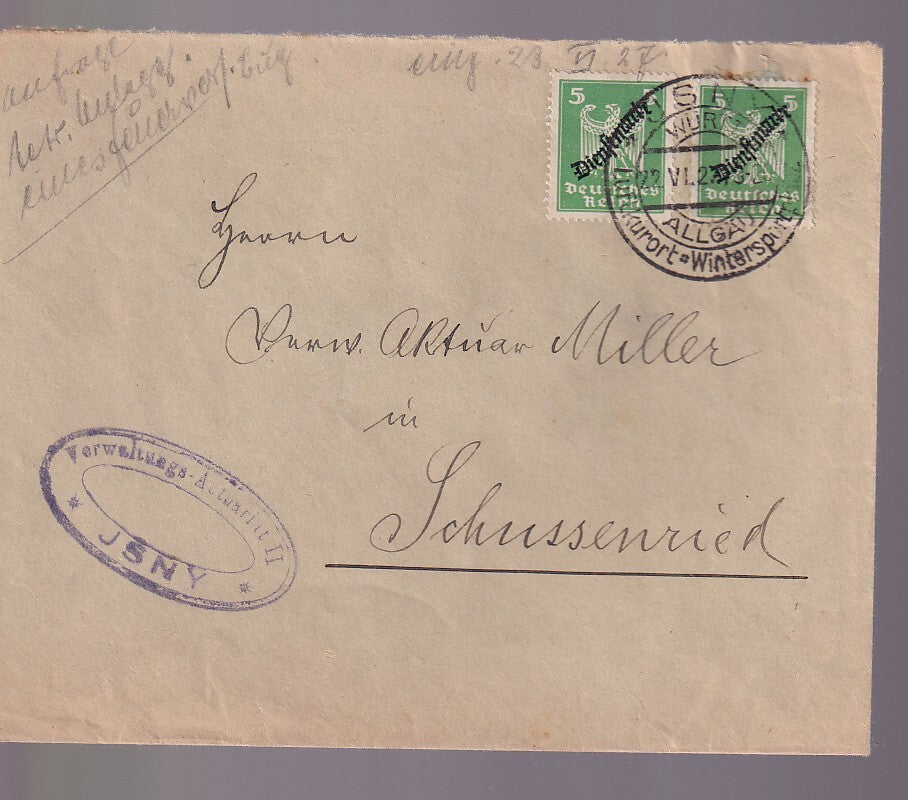 Anfrage
betr. Anlage
eines Feuerwerf.
eing. 23. VI. 27
5 5
Dienstmarke Dienstmarke
Deutsches Deutsches
Reich Reich
ISNY
WÜRTT
22.VI.27
ALLGÄU
Luftkurort * Wintersport
Herrn
Verw. Aktuar Miller
in
Schussenried
Verwaltungs-Actuariat II
JSNY